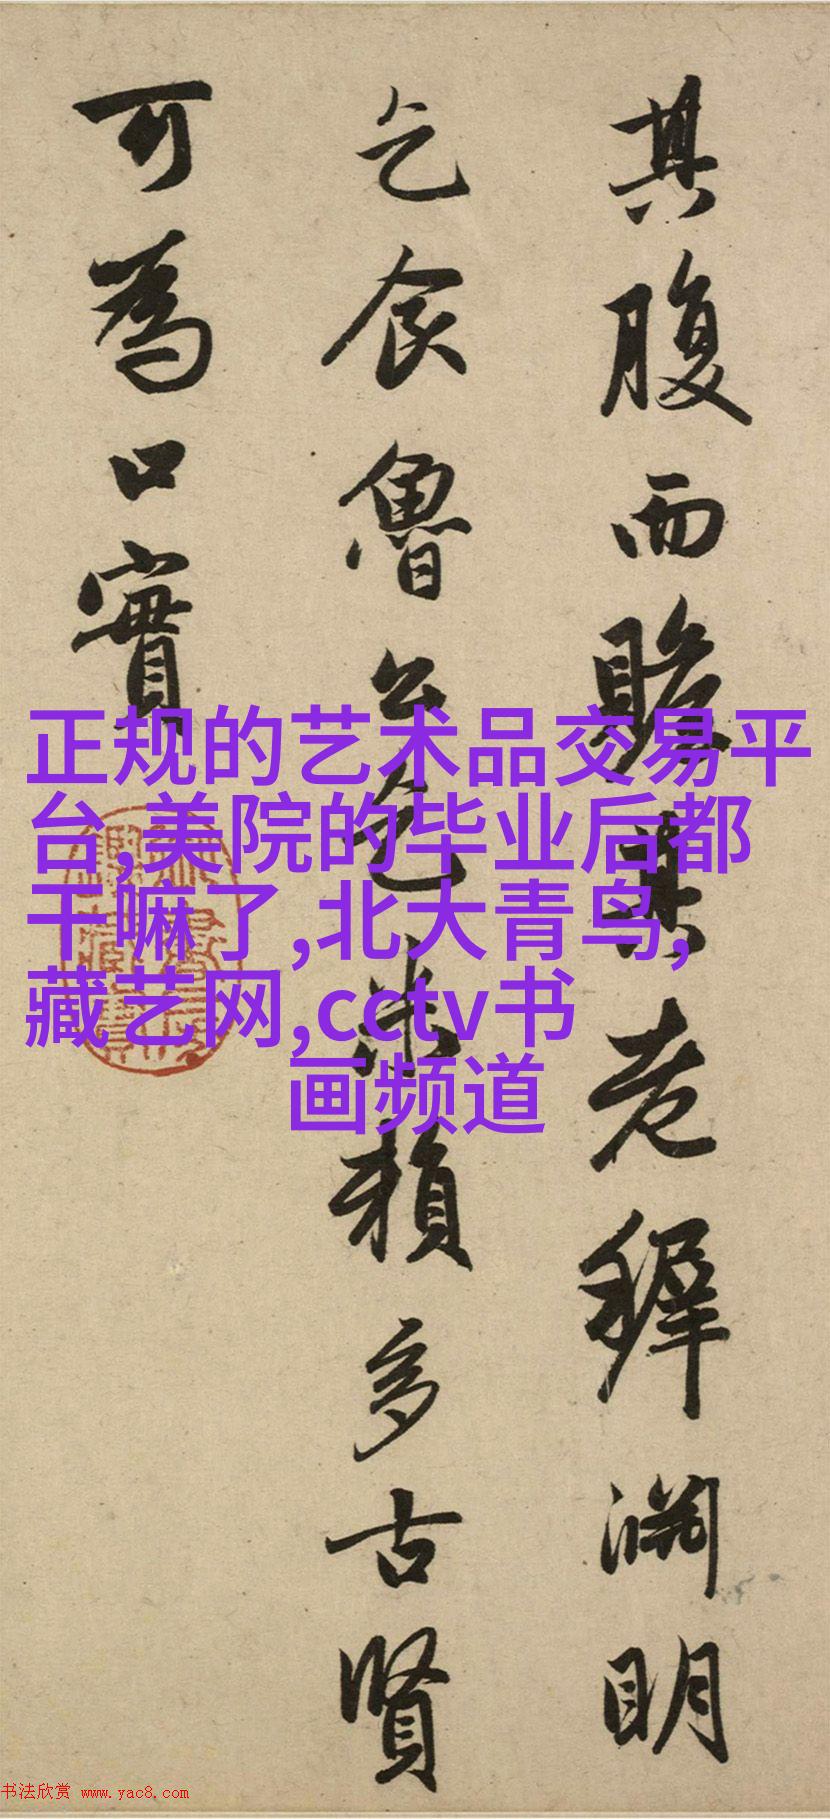 其腹而贍其老穉淵明
乞食魯公乞米賴多古賢
可為口實
正规的艺术品交易平
台,美院的毕业后都
干嘛了,北大青鸟,
藏艺网,cctv书
画频道
书法欣赏 www.yac8.com